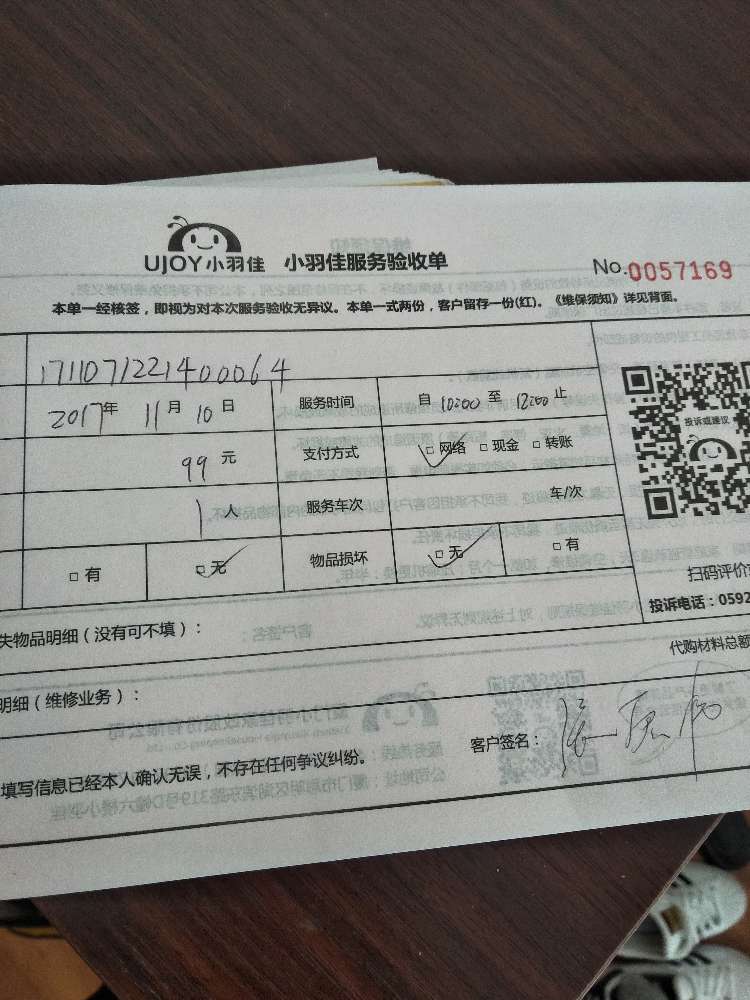 UJOY小羽佳 小羽佳服务验收单
No.0057169
本单一经核签，即视为对本次服务验收无异议。本单一式两份，客户留存一份(红)。《维保须知》详见背面。
1711071221400064
2017年 11月 10日 服务时间 自 10:00 至 12:00 止
99 元 支付方式 □网络 □现金 □转账
1人 服务车次 车/次
□有 □无 物品损坏 □无 □有
投诉或建议
扫码评价
投诉电话：0592
失物品明细（没有可不填）：
代购材料总额
明细（维修业务）：
填写信息已经本人确认无误，不存在任何争议纠纷。 客户签名：